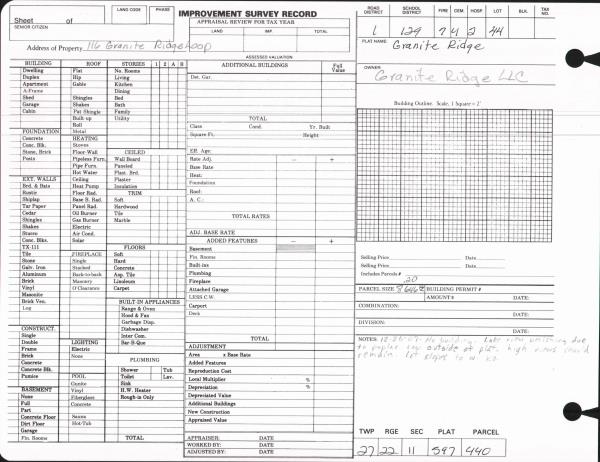 IMPROVEMENT SURVEY RECORD
Sheet of
SENIOR CITIZEN
LAND CODE PHASE
APPRAISAL REVIEW FOR TAX YEAR
LAND IMP. TOTAL
ASSESSED VALUATION
Address of Property 116 Granite Ridge Loop
ROAD DISTRICT SCHOOL DISTRICT FIRE CEM. HOSP LOT BLK. TAX NO.
1 129 7 4 2 44
PLAT NAME:
Granite Ridge
OWNER:
Granite Ridge LLC
BUILDING ROOF STORIES 1 2 A B
Dwelling Flat No. Rooms
Duplex Hip Living
Apartment Gable Kitchen
A-Frame Dining
Shed Shingles Bed
Garage Shakes Bath
Cabin Pat Shingle Family
Built-up Utility
Roll
FOUNDATION Metal
Concrete HEATING
Conc. Blk. Stoves CEILED
Stone, Brick Floor-Wall Wall Board
Posts Pipeless Furn. Paneled
Pipe Furn. Plast. Brd.
Hot Water Plaster
EXT. WALLS Ceiling Insulation
Brd. & Bats Heat Pump
Rustic Floor Rad. TRIM
Shiplap Base B. Rad. Soft
Tar Paper Panel Rad. Hardwood
Cedar Oil Burner Tile
Shingles Gas Burner Marble
Shakes Electric
Stucco Air Cond.
Conc. Blks. Solar
TX-111 FLOORS
Tile FIREPLACE Soft
Stone Single Hard
Galv. Iron Stacked Concrete
Aluminum Back-to-back Asp. Tile
Brick Masonry Linoleum
Vinyl O'Clearance Carpet
Masonite
Brick Ven. BUILT-IN APPLIANCES
Log Range & Oven
Hood & Fan
Garbage Disp.
Dishwasher
CONSTRUCT. Inter Com.
Single Bar-B-Que
Double LIGHTING
Frame Electric
Brick None PLUMBING
Concrete Shower Tub
Concrete Blk. Toilet Lav.
Pumice POOL Sink
Gunite H.W. Heater
BASEMENT Vinyl Rough-in Only
None Fiberglass
Full Concrete
Part
Concrete Floor Sauna
Dirt Floor Hot-Tub
Garage
Fin. Rooms TOTAL
ADDITIONAL BUILDINGS Full Value
Det. Gar.
TOTAL
Class Cond. Yr. Built
Square Ft. Height
Eff. Age:
Rate Adj. − +
Base Rate
Heat:
Foundation
Roof:
A. C.:
TOTAL RATES
ADJ. BASE RATE
ADDED FEATURES − +
Basement
Fin. Rooms
Built-ins
Plumbing
Fireplace
Attached Garage
LESS C.W.
Carport
Deck
TOTAL
ADJUSTMENT
Area x Base Rate
Added Features
Reproduction Cost
Local Multiplier %
Depreciation %
Depreciated Value
Additional Buildings
New Construction
Appraised Value
APPRAISER: DATE
WORKED BY: DATE
ADJUSTED BY: DATE
Building Outline: Scale, 1 Square = 2'
Selling Price Date:
Selling Price Date:
Includes Parcels #
20
PARCEL SIZE BUILDING PERMIT #
AMOUNT $ DATE:
COMBINATION:
DATE:
DIVISION:
DATE:
NOTES: No building. Lake view
outside of plat. high
remain. Lot slopes to W.
TWP RGE SEC PLAT PARCEL
27 22 11 597 440